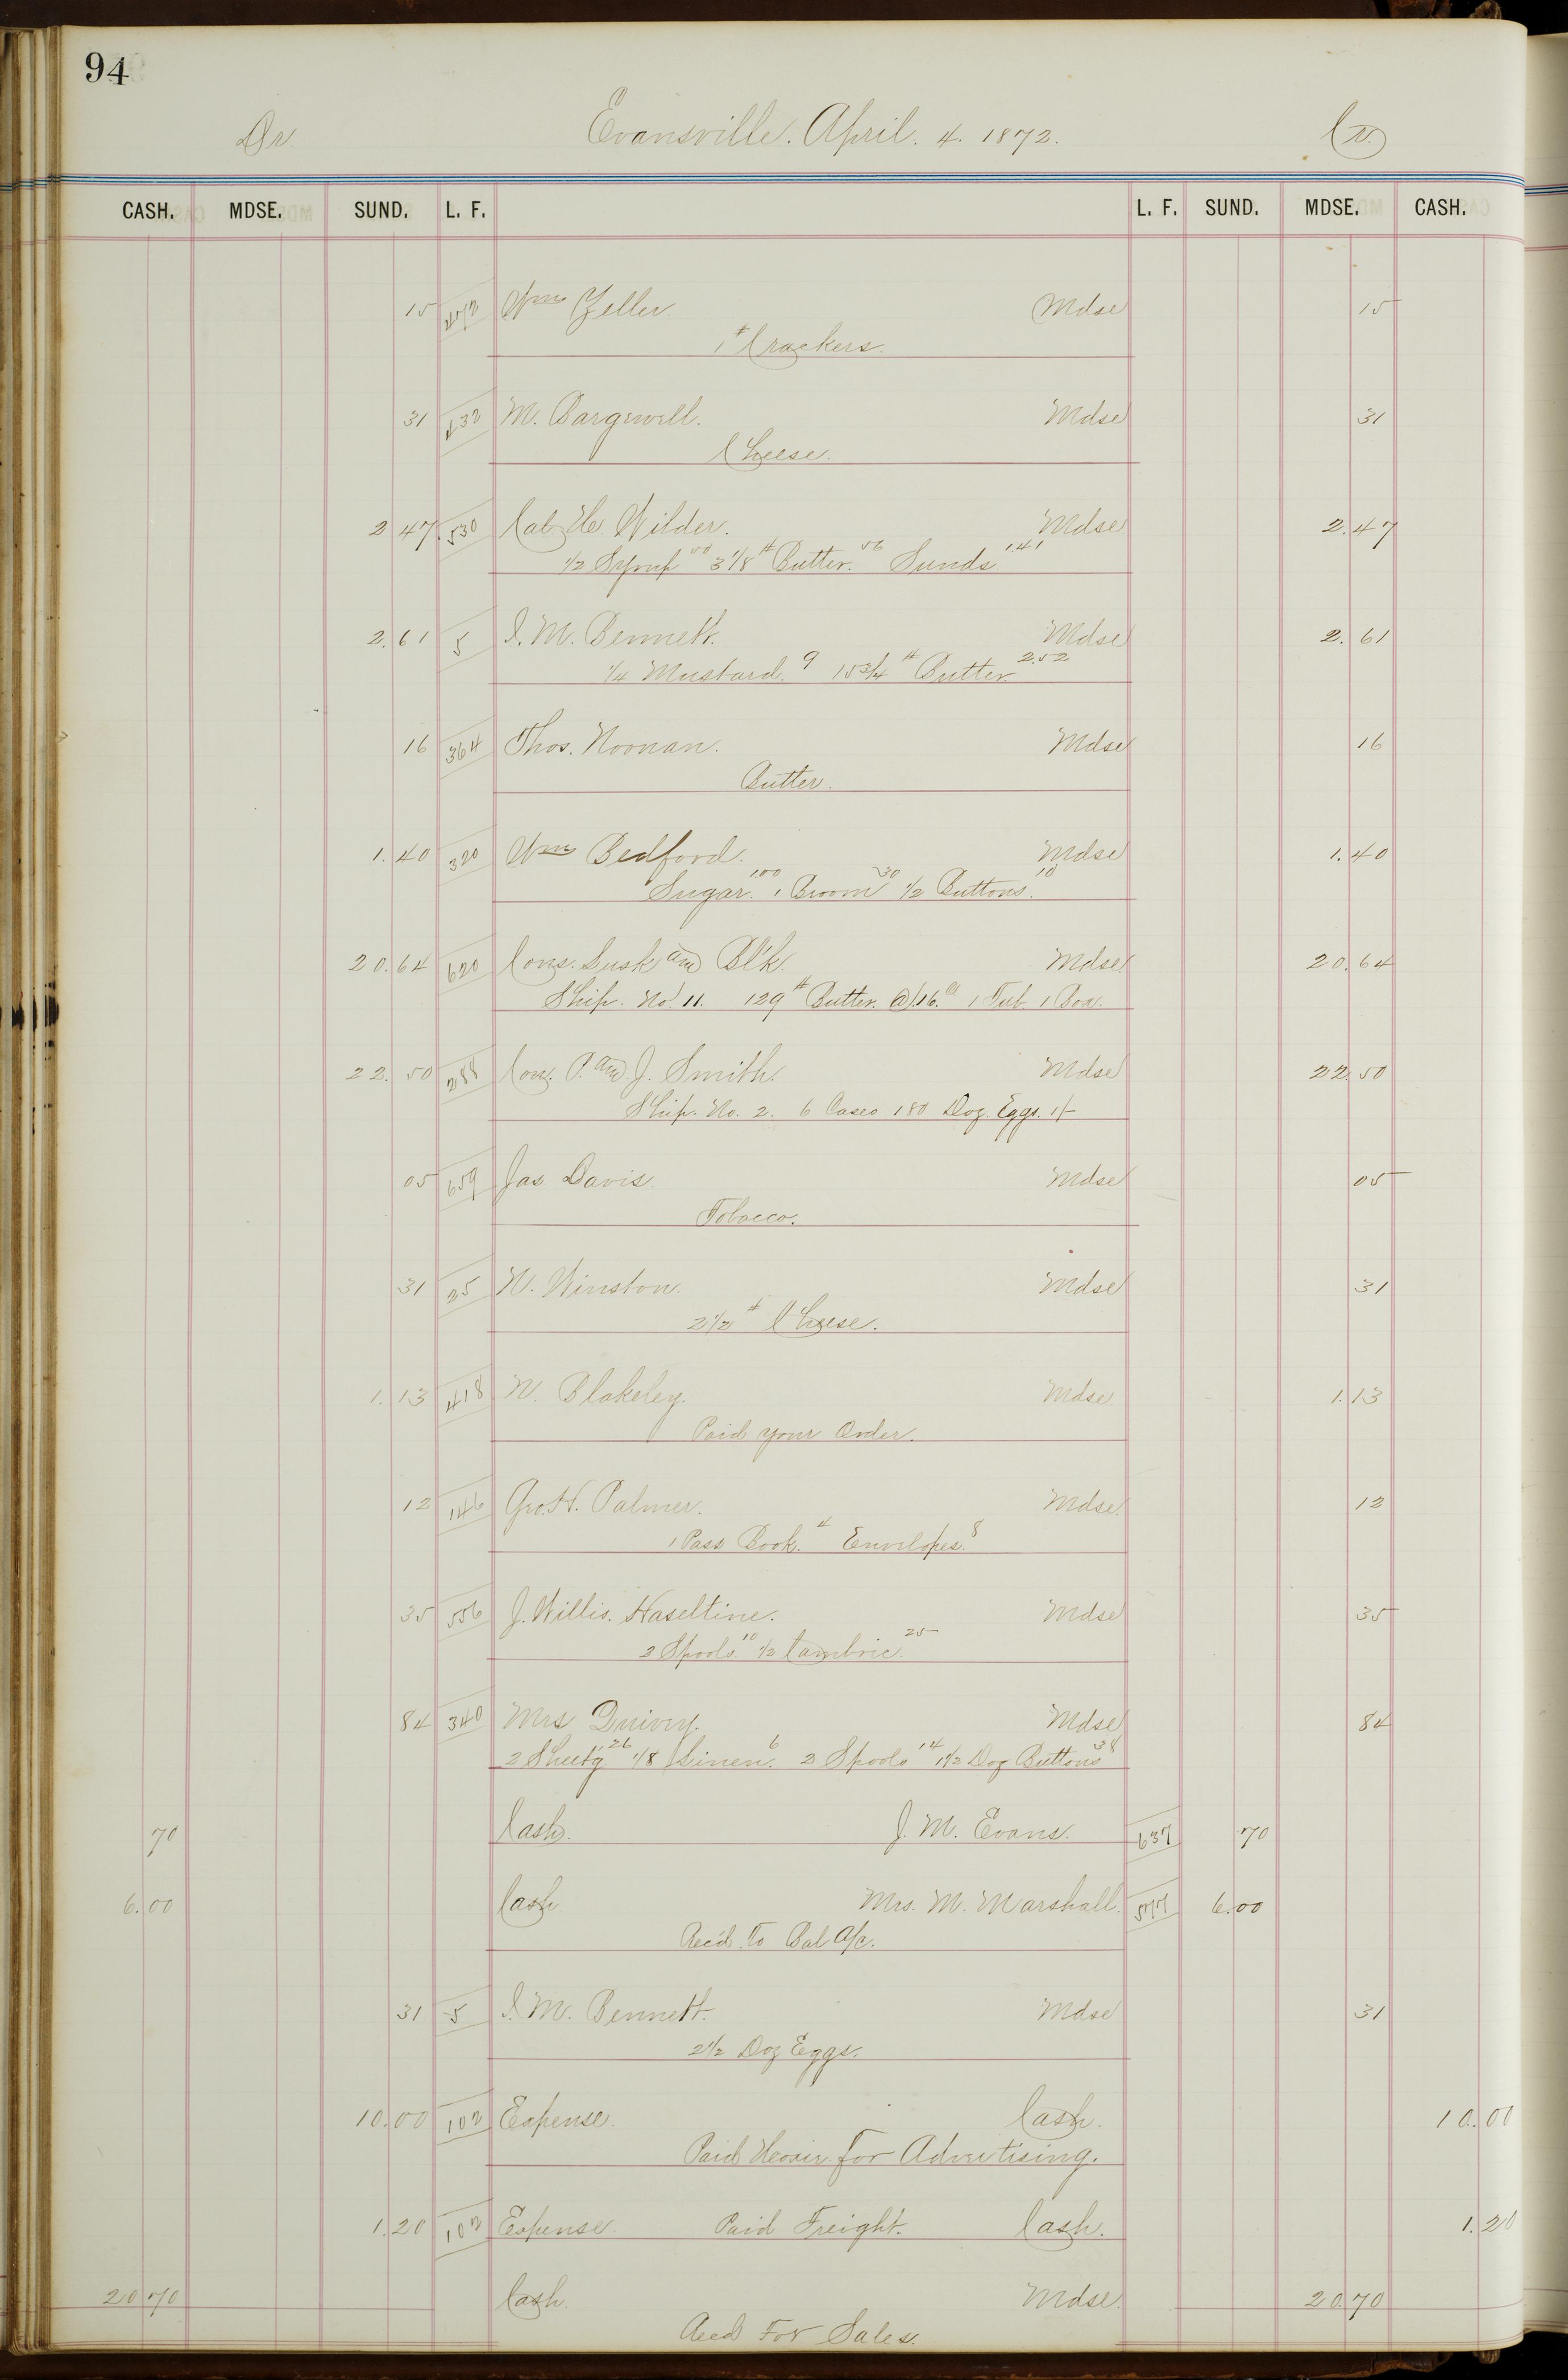 94
Dr Evansville. April. 4. 1872. Cr.
CASH. MDSE. SUND. L. F. L. F. SUND. MDSE. CASH.
15 472 Wm Zeller. Mdse 15
1 # Crackers.
31 432 M. Bargewell. Mdse 31
Cheese.
2 47 530 Cal H. Wilder. Mdse 2.47
1/2 Syrup 50 3 1/8 # Butter. 56 Sunds 1.41
2.61 5 I. M. Bennett. Mdse 2.61
1/4 Mustard. 9 15 3/4 # Butter 2.52
16 364 Thos. Noonan. Mdse 16
Butter.
1.40 320 Wm Bedford. Mdse 1.40
Sugar. 1.00 1 Broom 30 1/2 Buttons. 10
20.64 620 Cons. Lusk and Bl'k. Mdse 20.64
Ship. No. 11. 129 # Butter. @ .16. 1 Tub. 1 Box.
22.50 288 Con. P. and J. Smith. Mdse 22.50
Ship. No. 2. 6 Cases 180 Doz. Eggs. 1/-
05 659 Jas Davis. Mdse 05
Tobacco.
31 25 N. Winston. Mdse 31
2 1/2 # Cheese.
1.13 418 N. Blakeley. Mdse. 1.13
Paid your Order.
12 146 Geo. H. Palmer. Mdse. 12
1 Pass Book. 4 Envelopes. 8
35 556 J. Willis. Haseltine. Mdse 35
2 Spools 10 1/2 Cambric. 25
84 340 Mrs Quivey. Mdse 84
2 Sheetg 26 1/8 Linen. 6 2 Spools 14 1 1/2 Doz Buttons 38
70 Cash. J. M. Evans. 637 70
6.00 Cash Mrs. M. Marshall. 577 6.00
Rec'd To Bal A/c.
31 5 I. M. Bennett. Mdse 31
2 1/2 Doz Eggs.
10.00 102 Expense. Cash. 10.00
Paid for Advertising.
1.20 102 Expense. Paid Freight. Cash. 1.20
20 70 Cash. Mdse. 20.70
Recd For Sales.